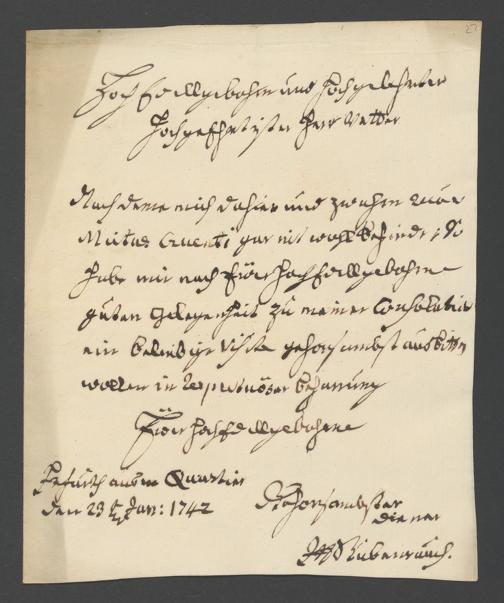 27
Hoch Edellgebohrn und Hochgelehrter
Hochgeehrtister Herr Vetter
Nach deme mich dahier und zwahrn
gar nit woll befinde; So
habe mir nach Eüer Hoch Edellgebohrne
guten Gelegenheit zu meiner Consolation
ein beliebige Visite gehorsambst ausbitten
wollen in beharrung
Eüer Hoch Edellgebohrne
Quartier
den 23 Jan: 1742
Gehorsambster
diener